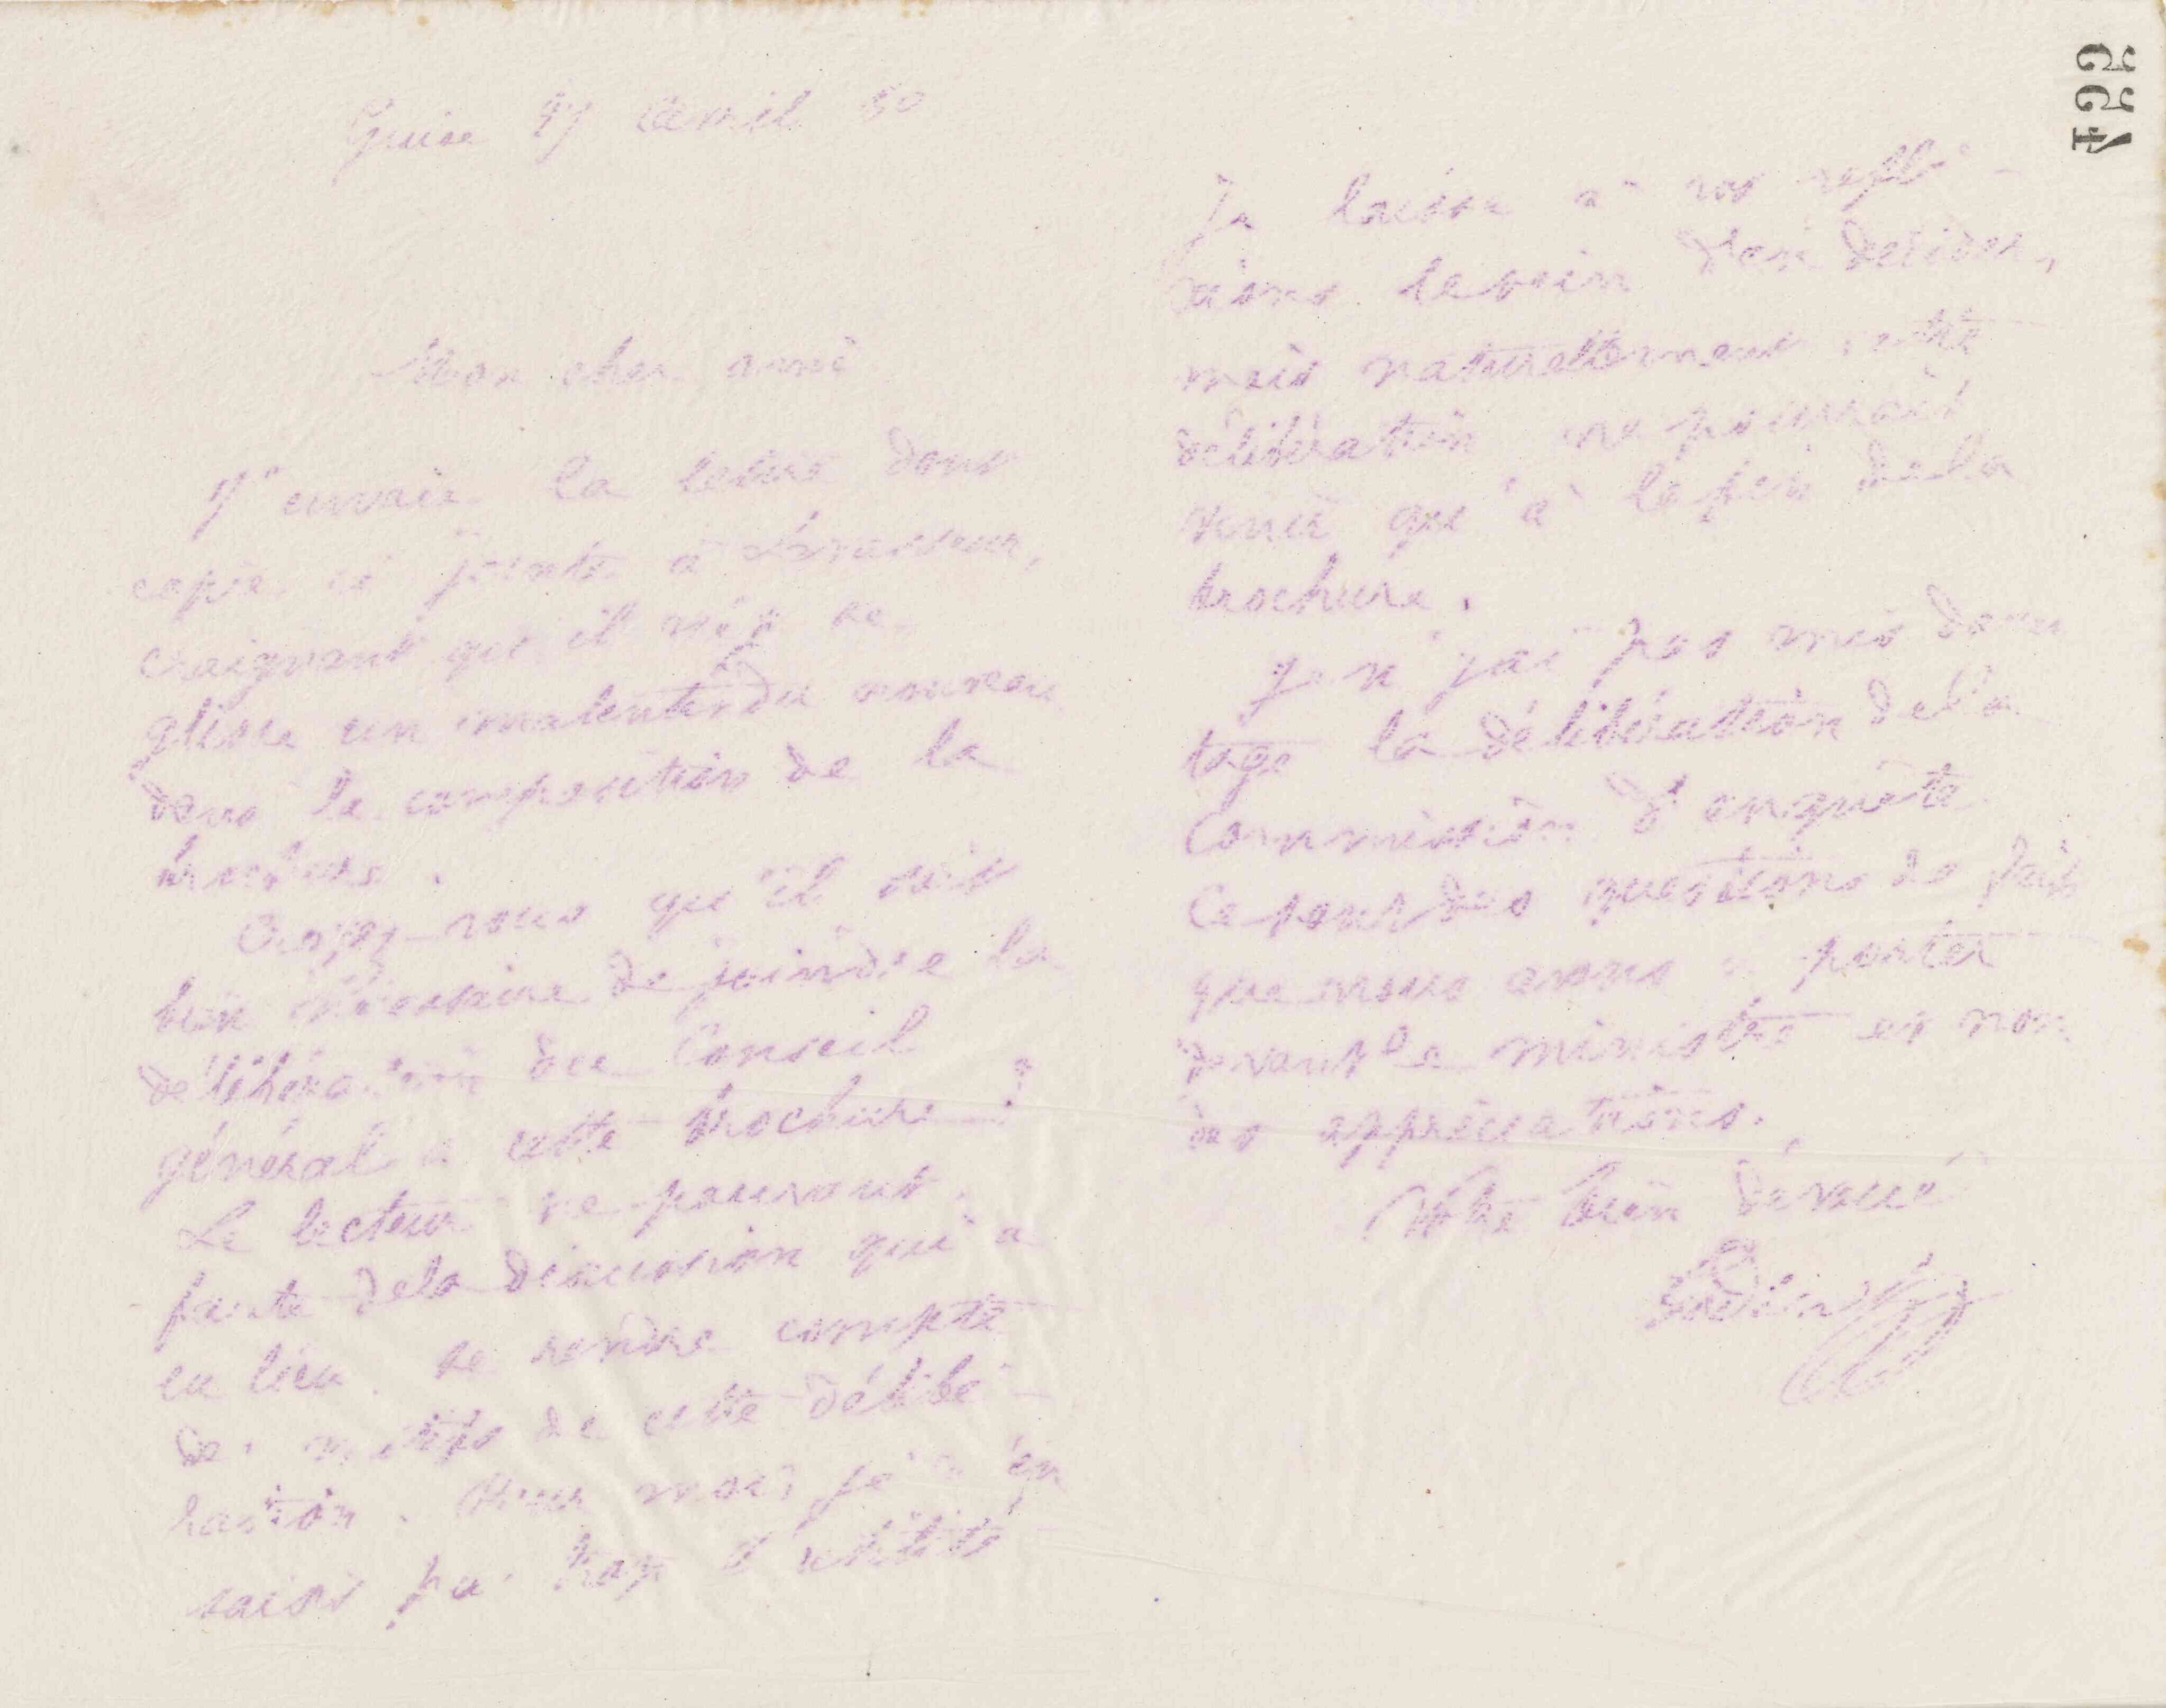 Guise 27 Avril 80
Mon cher ami
J'envoie la lettre dont
copie ci jointe à Levasseur,
craignant qu'il n'y se
glisse un malentendu nouveau
dans la composition de la
brochure.
Croyez-vous qu'il soit
bien nécessaire de joindre la
délibération du Conseil
général à cette brochure ?
Le lecteur ne pouvant,
faute dela discussion qui a
eu lieu se rendre compte
des motifs de cette délibé-
ration. Pour moi je n'en
saisis pas trop l'utilité
Je laisse à vos réfle-
xions le soin d'en décider,
mais naturellement cette
délibération ne pourrait
venir qu'à la fin dela
brochure.
Je n'y ai pas mis davan
tage la délibération dela
Commission d'enquête
Ce sont des questions de fait
que nous avons à porter
devant le ministre et non
des appréciations.
Votre bien dévoué
Godin
455